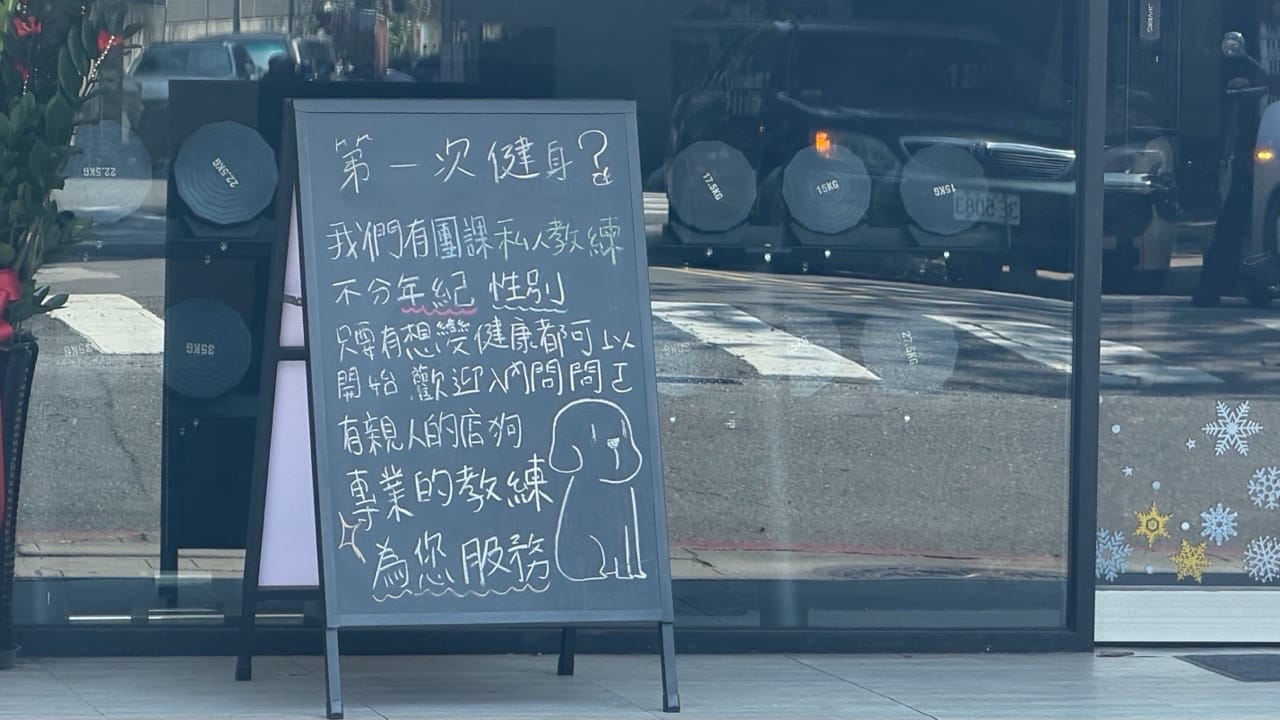 第一次健身?
我們有團課私人教練
不分年紀 性別
只要有想變健康都可以
開始 歡迎入內問問
有親人的店狗
專業的教練
為您服務
22.5KG
22.5KG
17.5KG
15KG
15KG
35KG
27.5KG